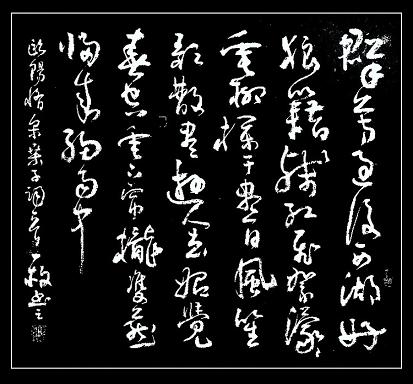 群芳過後西湖好
狼籍殘紅飛絮濛濛
垂柳欄干盡日風笙
歌散盡遊人去始覺
春空垂下簾櫳雙燕
歸來細雨中
歐陽脩采桑子詞